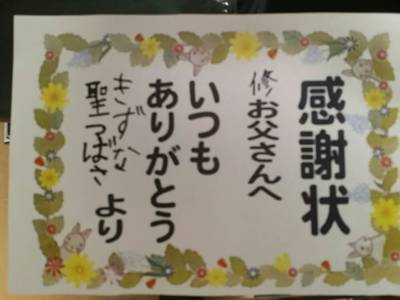 感謝状
修お父さんへ
いつも
ありがとう
きずな
聖つばさより